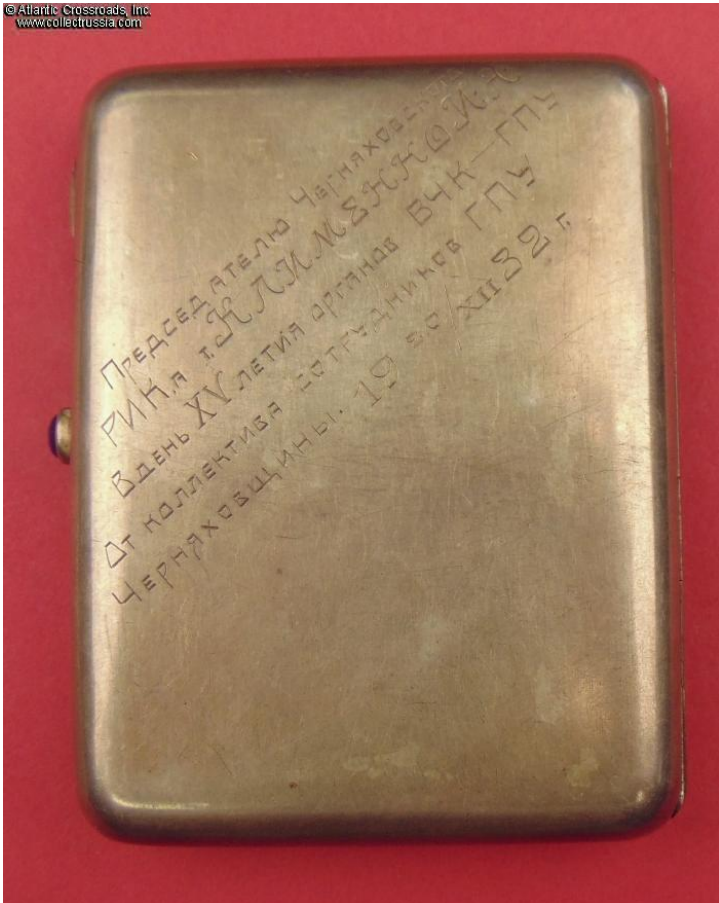 © Atlantic Crossroads, Inc.
www.collectrussia.com
Председателю Черняховского
РИК,а т. КЛИМЕНКО И.Х
В день XV летия органов ВЧК—ГПУ
От коллектива сотрудников ГПУ
Черняховщины. 19 20/XII 32 г.